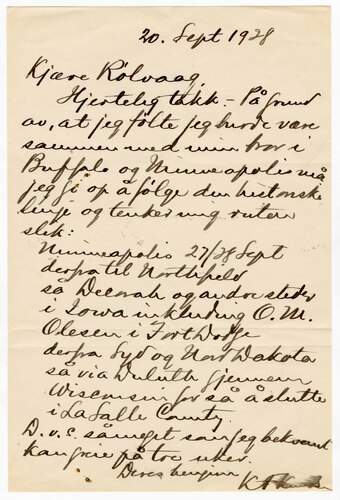 20. Sept 1928
Kjære Rölvaag,
Hjertelig takk. - På grund
av, at jeg følte jeg burde være
sammen med min bror i
Buffalo og Minneapolis må
jeg gi op å følge den historiske
linje og tenker mig ruten
slik:
Minneapolis 27/28 Sept
derfra til Northfield
så Decorah og andre steder
i Iowa inkluding O. M.
Olesen i Fort Dodge
derfra Syd og Nord Dakota
så via Duluth gjennem
Wisconsin for så å slutte
i La Salle County.
D. v. s. så meget som jeg bekvemt
kan greie på tre uker.
Deres hengivne